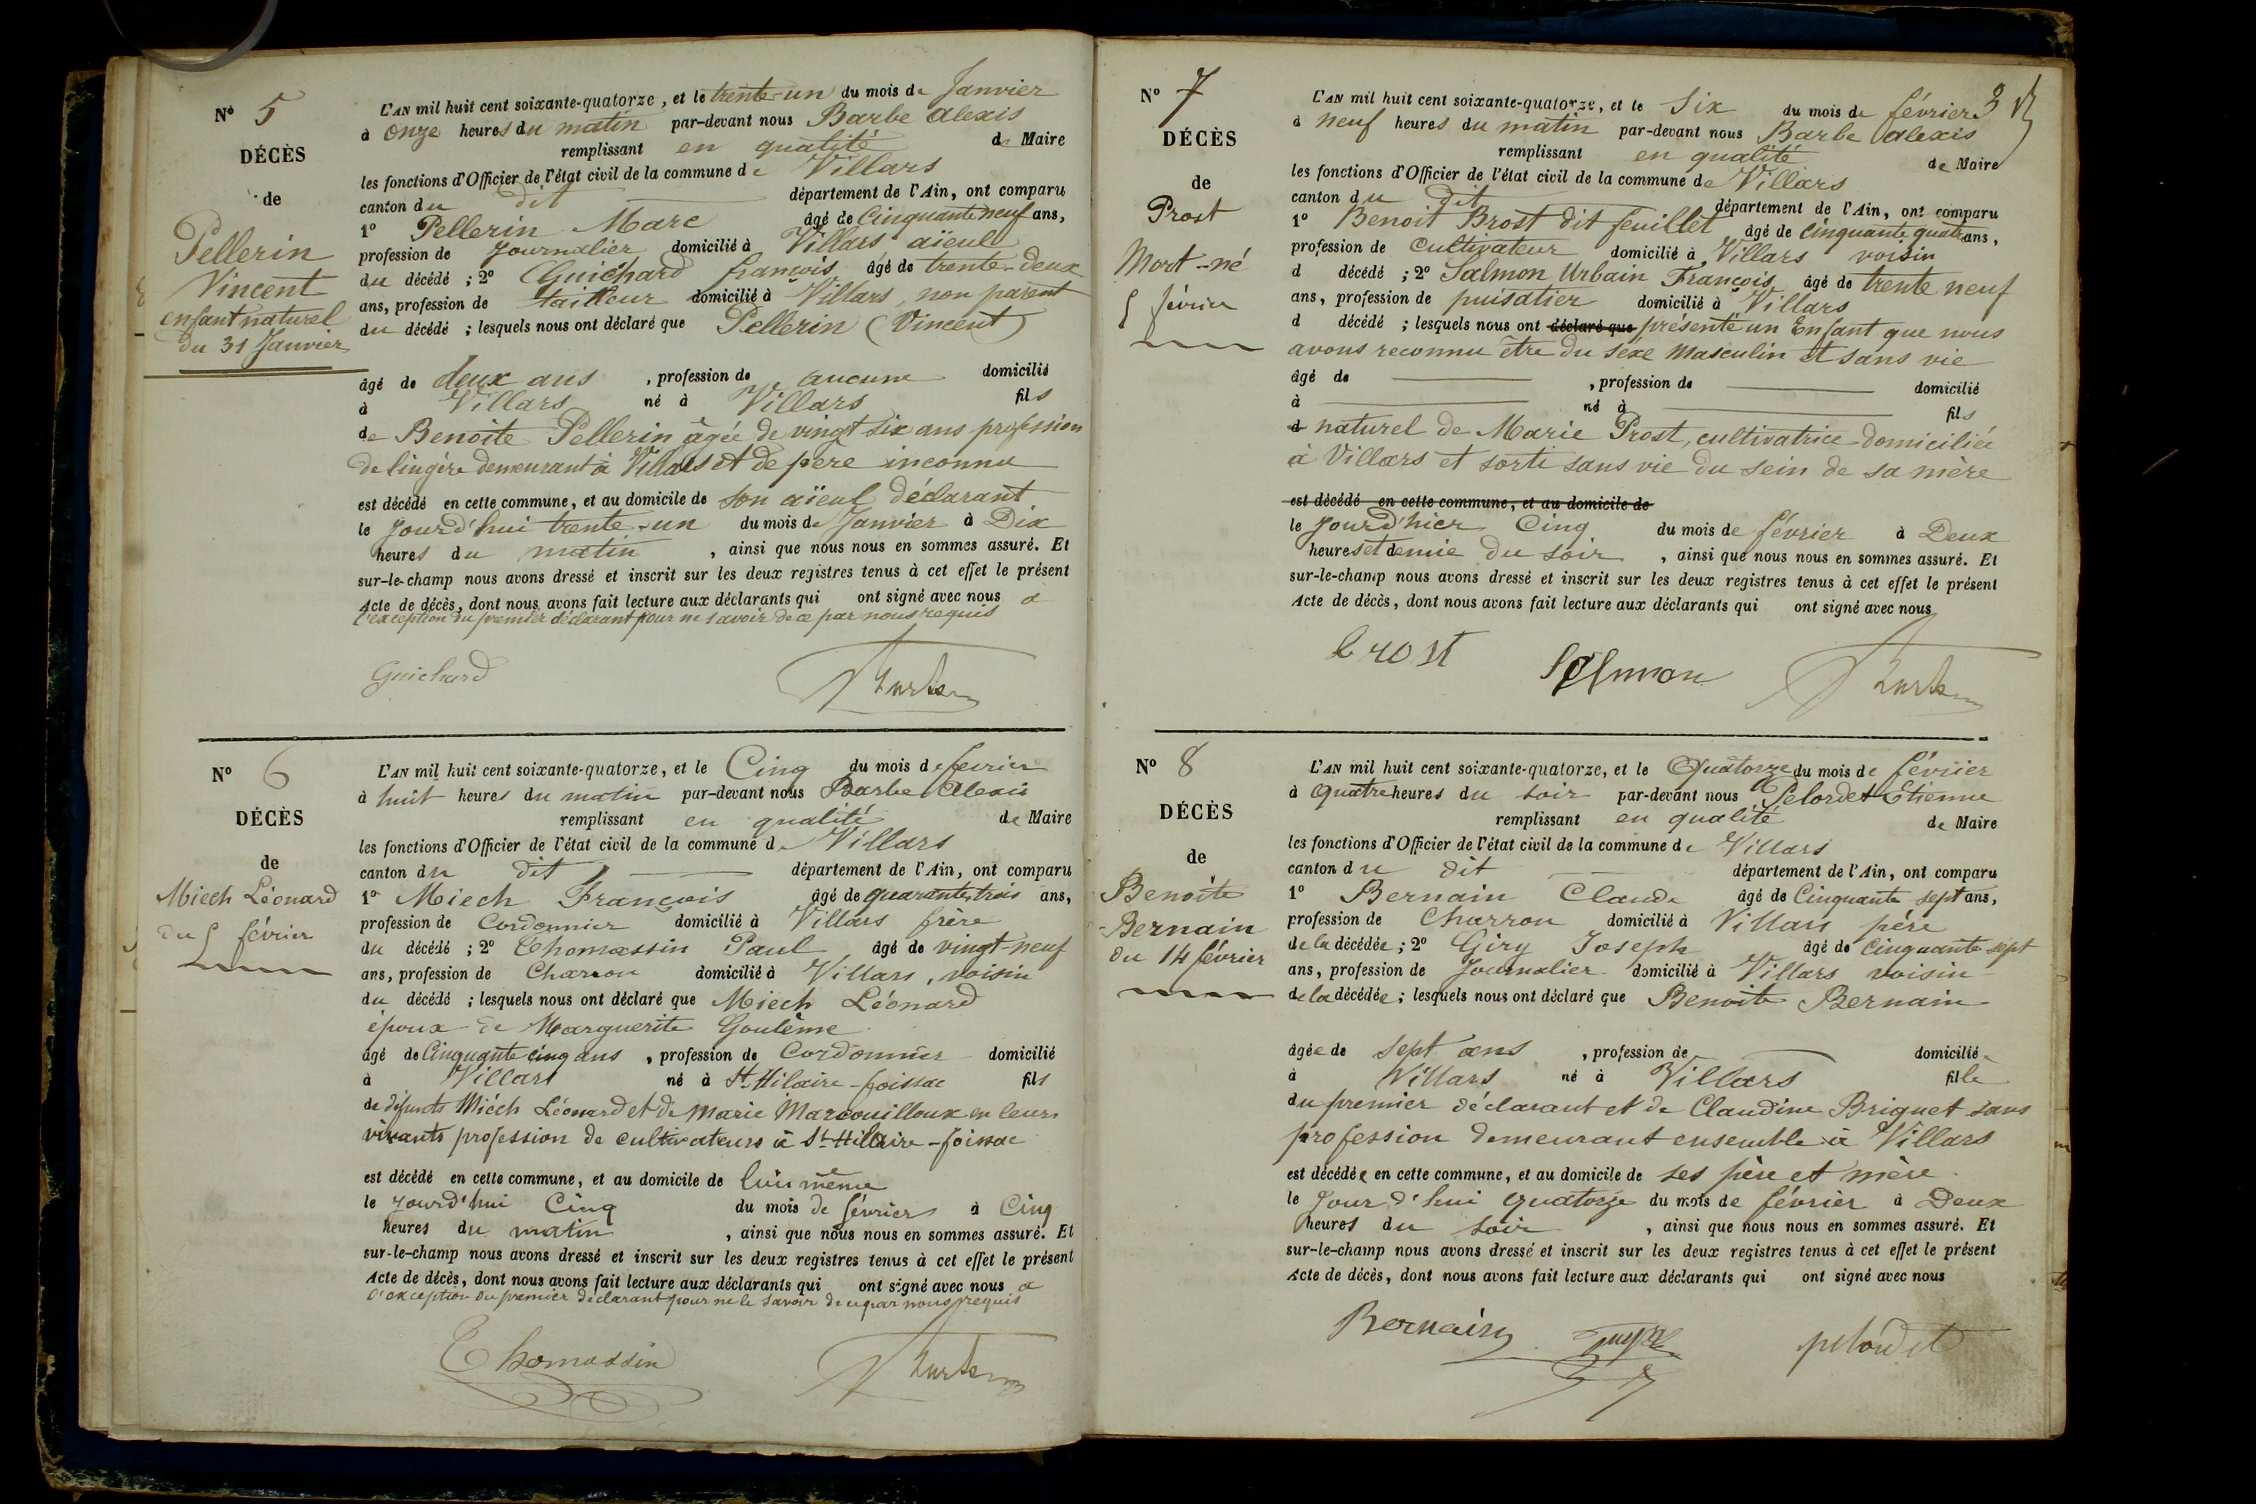 N° 5
DÉCÈS
de
Pellerin
Vincent
enfant naturel
du 31 Janvier
L'AN mil huit cent soixante-quatorze, et le trente-un du mois de Janvier
à onze heures du matin par-devant nous Barbe Alexis
remplissant en qualité de Maire
les fonctions d'Officier de l'état civil de la commune de Villars
canton du dit département de l'Ain, ont comparu
1° Pellerin Marc âgé de Cinquante neuf ans,
profession de Journalier domicilié à Villars aïeul
du décédé ; 2° Guichard françois âgé de trente-deux
ans, profession de tailleur domicilié à Villars, non parent
du décédé ; lesquels nous ont déclaré que Pellerin (Vincent)
âgé de deux ans , profession de aucune domicilié
à Villars né à Villars fils
de Benoite Pellerin âgée de vingt six ans profession
de lingère demeurant à Villars et de père inconnu
est décédé en cette commune, et au domicile de son aïeul déclarant
le Jourd'hui trente-un du mois de Janvier à Dix
heures du matin , ainsi que nous nous en sommes assuré. Et
sur-le-champ nous avons dressé et inscrit sur les deux registres tenus à cet effet le présent
Acte de décès, dont nous avons fait lecture aux déclarants qui ont signé avec nous a
l'exception du premier déclarant pour ne savoir de ce par nous requis
Guichard
N° 6
DÉCÈS
de
Miech Léonard
du 5 février
L'AN mil huit cent soixante-quatorze, et le Cinq du mois de fevrier
à huit heures du matin par-devant nous Barbe Alexis
remplissant en qualité de Maire
les fonctions d'Officier de l'état civil de la commune de Villars
canton du dit département de l'Ain, ont comparu
1° Miech François âgé de quarante trois ans,
profession de Cordonnier domicilié à Villars frère
du décédé ; 2° Thomassin Paul âgé de vingt-neuf
ans, profession de Charron domicilié à Villars, voisin
du décédé ; lesquels nous ont déclaré que Miech Léonard
époux de Marguerite Goulème
âgé de Cinquante cinq ans , profession de Cordonnier domicilié
à Villars né à St Hilaire-foissac fils
de défunts Miéch Léonard et de Marie Marcouilloux en leurs
vivants profession de cultivateurs à St-Hillaire-foissac
est décédé en cette commune, et au domicile de lui même
le Jourd'hui Cinq du mois de février à Cinq
heures du matin , ainsi que nous nous en sommes assuré. Et
sur-le-champ nous avons dressé et inscrit sur les deux registres tenus à cet effet le présent
Acte de décès, dont nous avons fait lecture aux déclarants qui ont signé avec nous a
l'exception du premier déclarant pour ne le savoir de ce par nous requis
Thomassin
N° 7
DÉCÈS
de
Prost
Mort-né
5 février
3
L'AN mil huit cent soixante-quatorze, et le Six du mois de février
à neuf heures du matin par-devant nous Barbe Alexis
remplissant en qualité de Maire
les fonctions d'Officier de l'état civil de la commune de Villars
canton du dit département de l'Ain, ont comparu
1° Benoit Brost dit feuillet âgé de cinquante quatre ans,
profession de Cultivateur domicilié à Villars voisin
d décédé ; 2° Salmon Urbain François âgé de trente neuf
ans, profession de puisatier domicilié à Villars
d décédé ; lesquels nous ont déclaré que présenté un Enfant que nous
avons reconnu être du séxe Masculin et sans vie
âgé de , profession de domicilié
à né à fils
d naturel de Marie Prost, cultivatrice domiciliée
à Villars et sorti sans vie du sein de sa mère
est décédé en cette commune, et au domicile de
le Jourd'hier Cinq du mois de février à Deux
heures et demie du soir , ainsi que nous nous en sommes assuré. Et
sur-le-champ nous avons dressé et inscrit sur les deux registres tenus à cet effet le présent
Acte de décès, dont nous avons fait lecture aux déclarants qui ont signé avec nous
brost Salmon
N° 8
DÉCÈS
de
Benoite
Bernain
du 14 février
L'AN mil huit cent soixante-quatorze, et le Quatorze du mois de février
à Quatre heures du soir par-devant nous Pelordet Etienne
remplissant en qualité de Maire
les fonctions d'Officier de l'état civil de la commune de Villars
canton du dit département de l'Ain, ont comparu
1° Bernain Claude âgé de Cinquante sept ans,
profession de Charron domicilié à Villars père
de la décédée ; 2° Giry Joseph âgé de Cinquante sept
ans, profession de Journalier domicilié à Villars voisin
de la décédée ; lesquels nous ont déclaré que Benoite Bernain
âgée de sept ans , profession de domiciliée
à Villars né à Villars fille
du premier déclarant et de Claudine Briquet sans
profession demeurant ensemble à Villars
est décédée en cette commune, et au domicile de ses père et mère
le Jour d'hui quatorze du mois de février à Deux
heures du soir , ainsi que nous nous en sommes assuré. Et
sur-le-champ nous avons dressé et inscrit sur les deux registres tenus à cet effet le présent
Acte de décès, dont nous avons fait lecture aux déclarants qui ont signé avec nous
Bernain pelordet